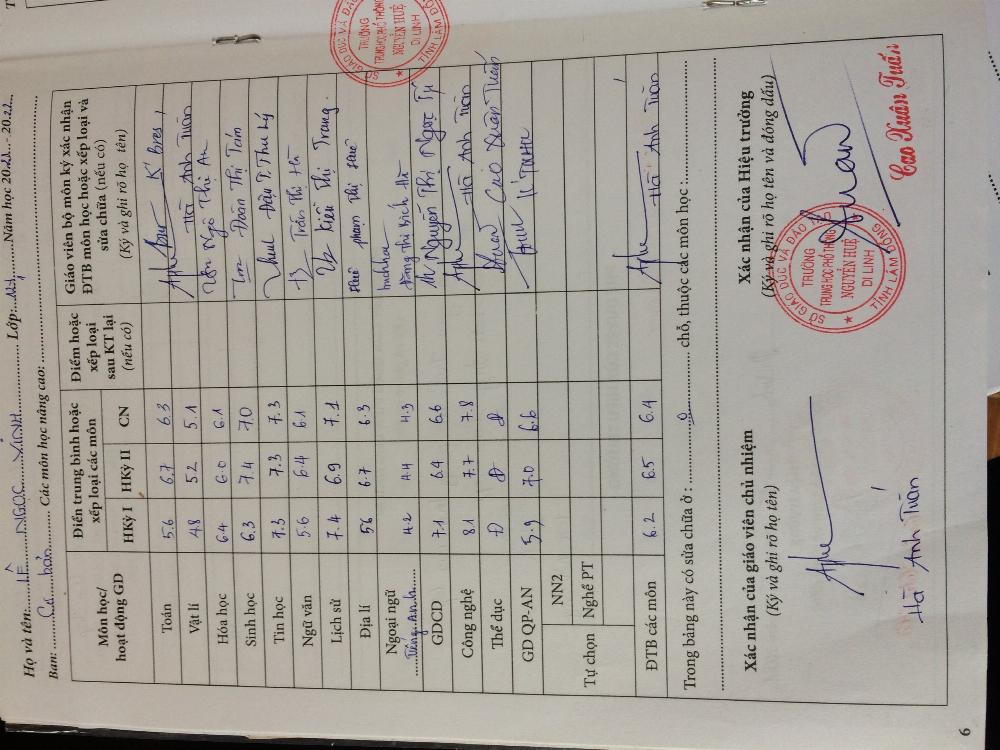 Họ và tên: LÊ NGỌC Lớp: Năm học 20 - 2022
Ban: Cơ bản Các môn học nâng cao:
Môn học/ hoạt động GD
Điển trung bình hoặc xếp loại các môn
HKỳ I HKỳ II CN
Điểm hoặc xếp loại sau KT lại (nếu có)
Giáo viên bộ môn ký xác nhận ĐTB môn học hoặc xếp loại và sửa chữa (nếu có)
(Ký và ghi rõ họ tên)
Toán 5.6 6.7 6.3 K' Bres
Vật lí 4.8 5.2 5.1 Hà Anh Tuấn
Hóa học 6.4 6.0 6.1 Ngô Thị An
Sinh học 6.3 7.4 7.0 Đoàn Thị Tám
Tin học 7.3 7.3 7.3 Đậu T. Thu Lý
Ngữ văn 5.6 6.4 6.1 Trần Thị Hà
Lịch sử 7.4 6.9 7.1 Kiều Thị Trang
Địa lí 5.6 6.7 6.3 Phạm Thị Huê
Ngoại ngữ Tiếng Anh 4.2 4.4 4.3 Bích Hà
GDCD 7.1 6.4 6.6 Nguyễn Thị Ngọc Tú
Công nghệ 8.1 7.7 7.8 Hà Anh Tuấn
Thể dục Đ Đ Đ Cao Xuân Tuấn
GD QP-AN 5.9 7.0 6.6
Tự chọn
NN2
Nghề PT
ĐTB các môn 6.2 6.5 6.4 Hà Anh Tuấn
Trong bảng này có sửa chữa ở : 0 chỗ, thuộc các môn học :
Xác nhận của giáo viên chủ nhiệm
(Ký và ghi rõ họ tên)
Hà Anh Tuấn
Xác nhận của Hiệu trưởng
(Ký và ghi rõ họ tên và đóng dấu)
SỞ GIÁO DỤC VÀ ĐÀO TẠO
TRƯỜNG
TRUNG HỌC PHỔ THÔNG
NGUYỄN HUỆ
DI LINH
TỈNH LÂM ĐỒNG
Cao Xuân Tuấn
SỞ GIÁO DỤC VÀ ĐÀO
TRƯỜNG
TRUNG HỌC PHỔ THÔNG
NGUYỄN HUỆ
DI LINH
TỈNH LÂM ĐỒNG
6